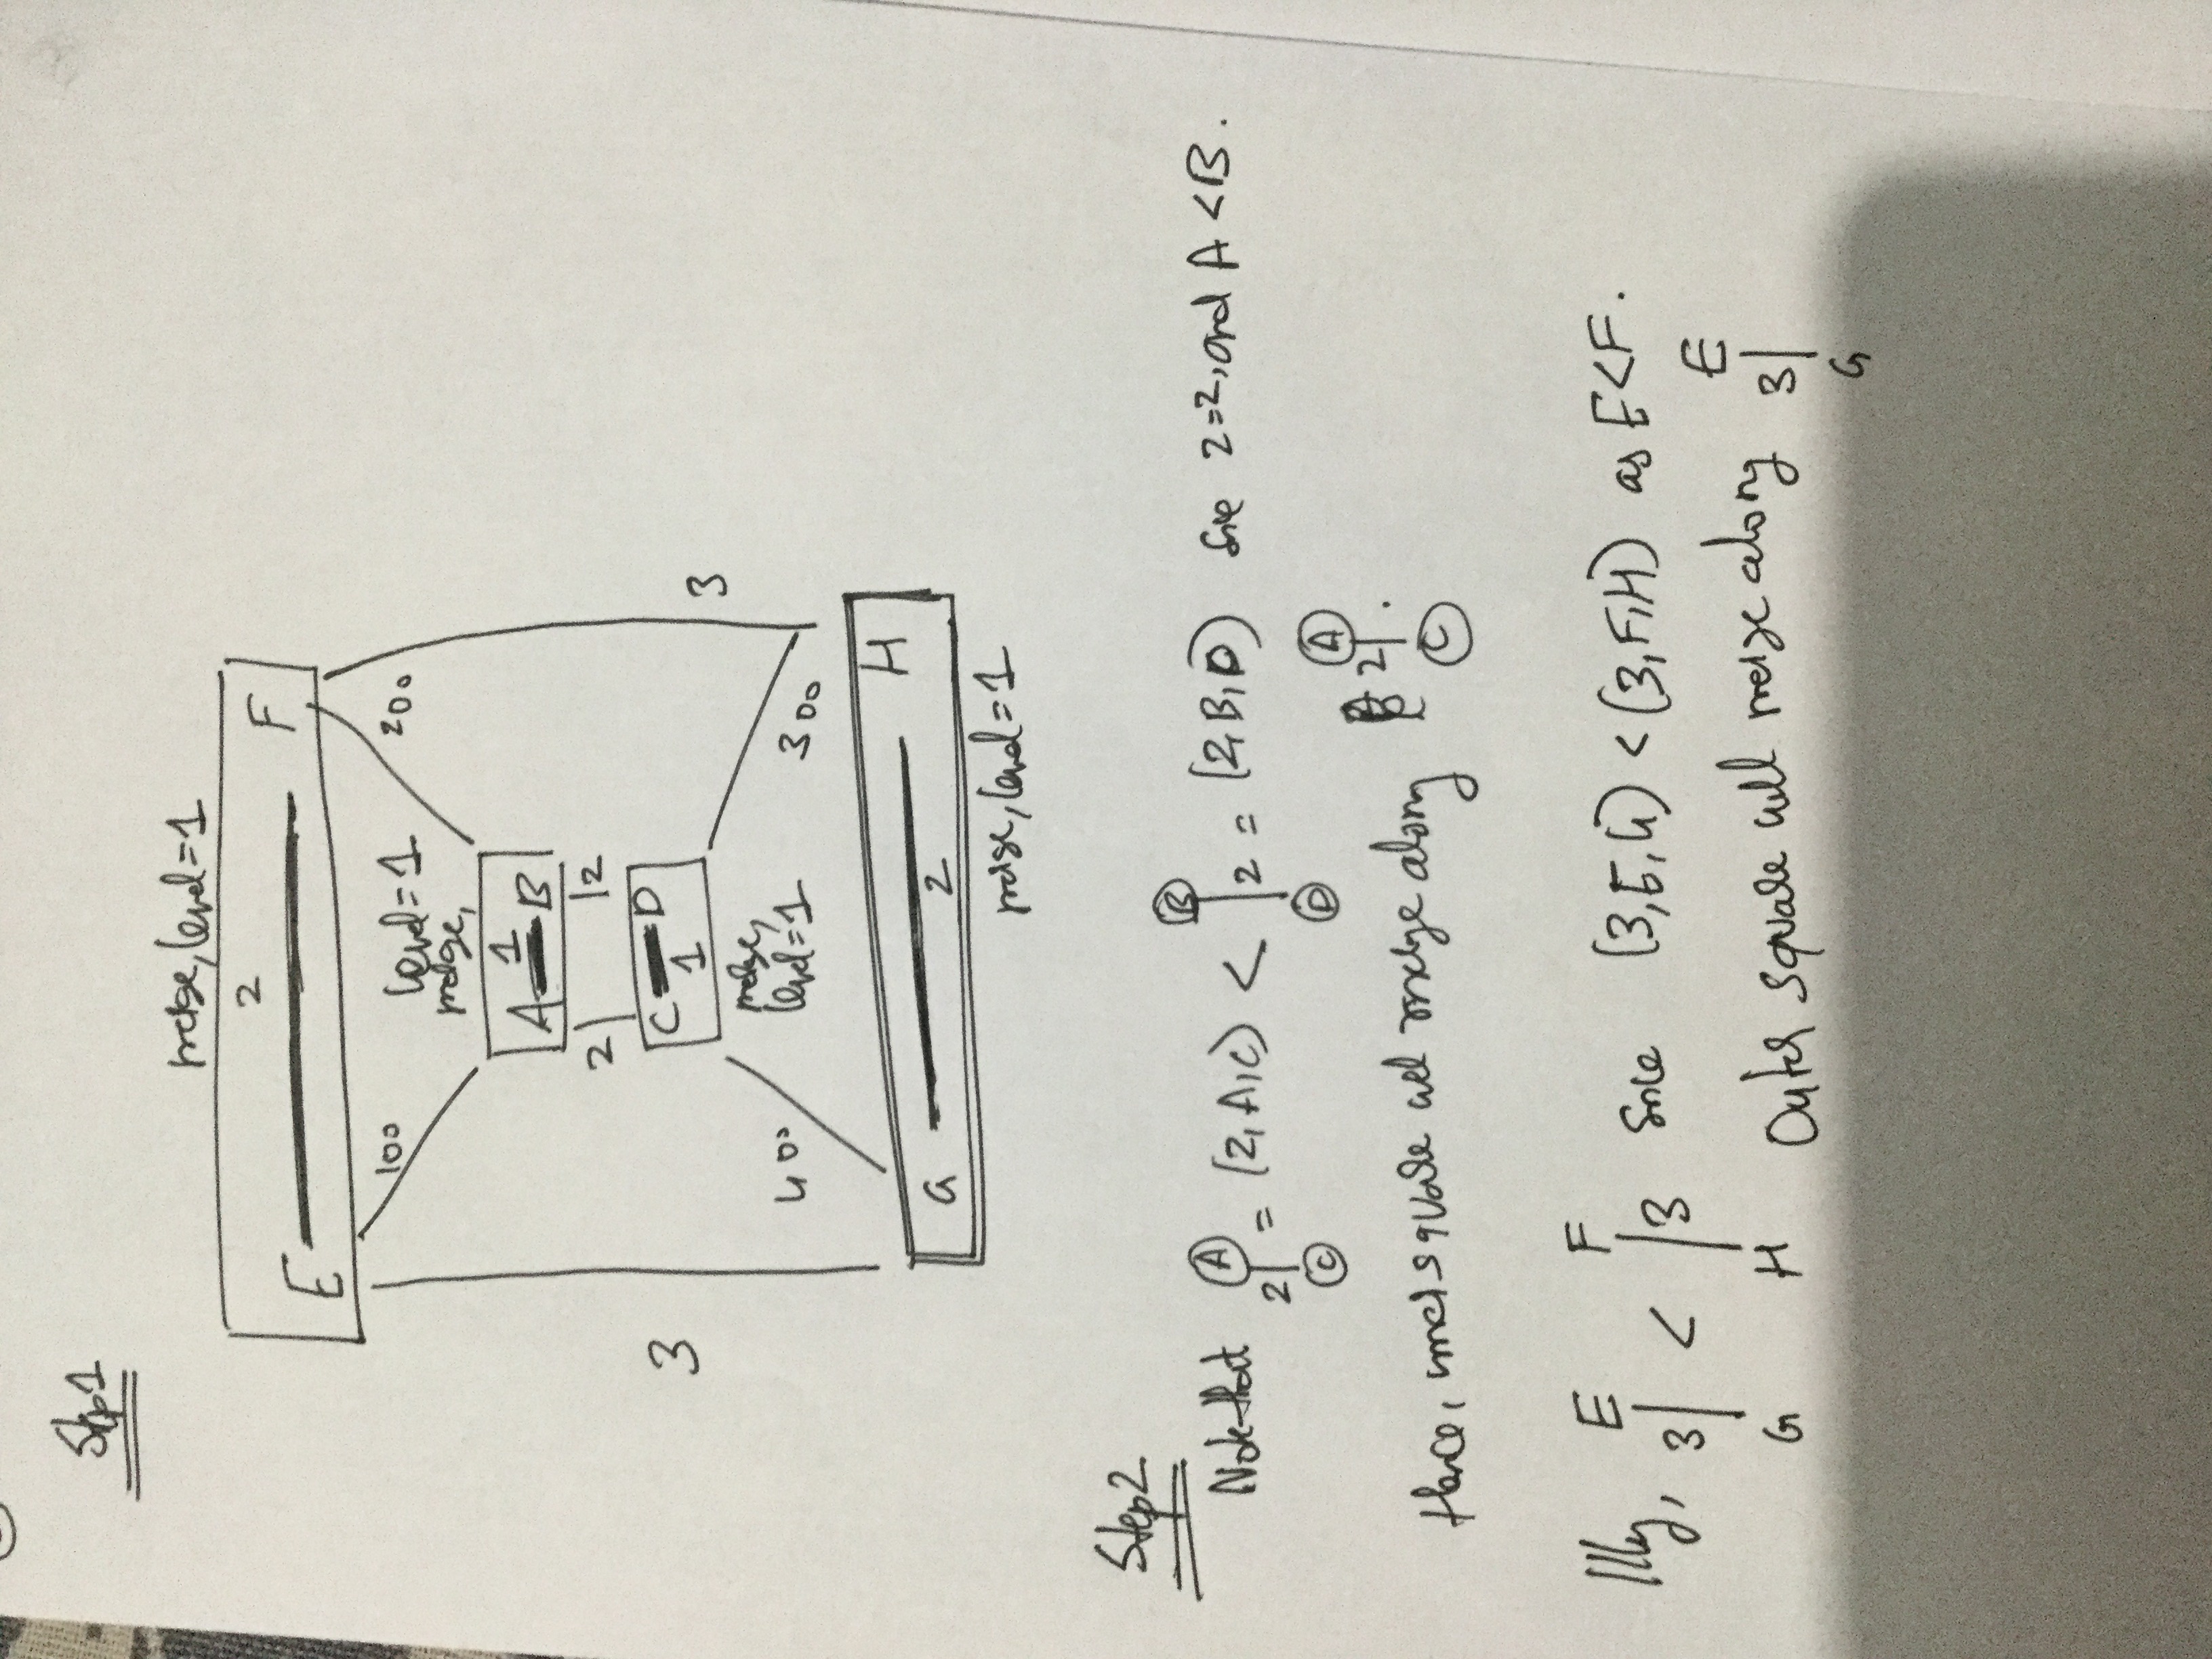 Step1
merge, level=1
2
E F
100 level=1 200
merge,
1
A B
2 2
C D
1
3 3
merge,
level=1
400 300
G H
2
merge, level=1
Step2
Note that A 2 C = (2, A, C) < B 2 D = (2, B, D) since 2=2, and A < B.
Hence, inner square will merge along A 2 C.
Illy, E 3 G < F 3 H since (3, E, G) < (3, F, H) as E < F.
Outer square will merge along E 3 G